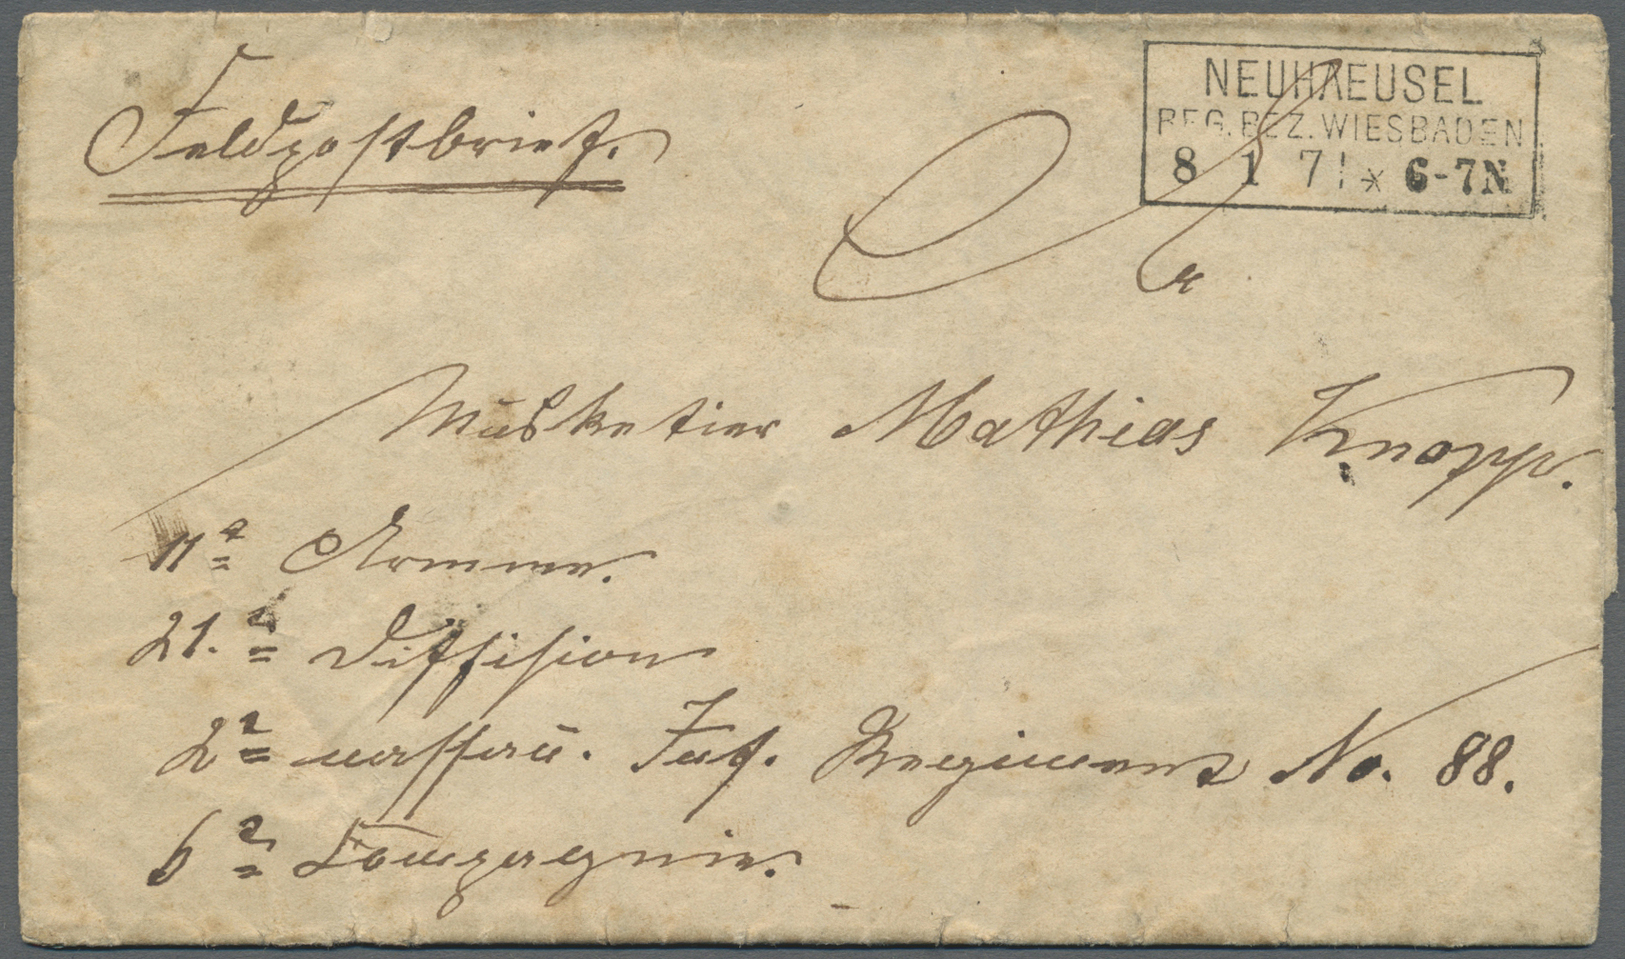 Feldpostbrief.
NEUHAEUSEL
REG. BEZ. WIESBADEN
8 1 71 * 6-7N
An
Musketier Mathias Knopp.
11te Armee.
21.te Diffision
2te nassau. Inf. Regiment No. 88.
6te Compagnie.